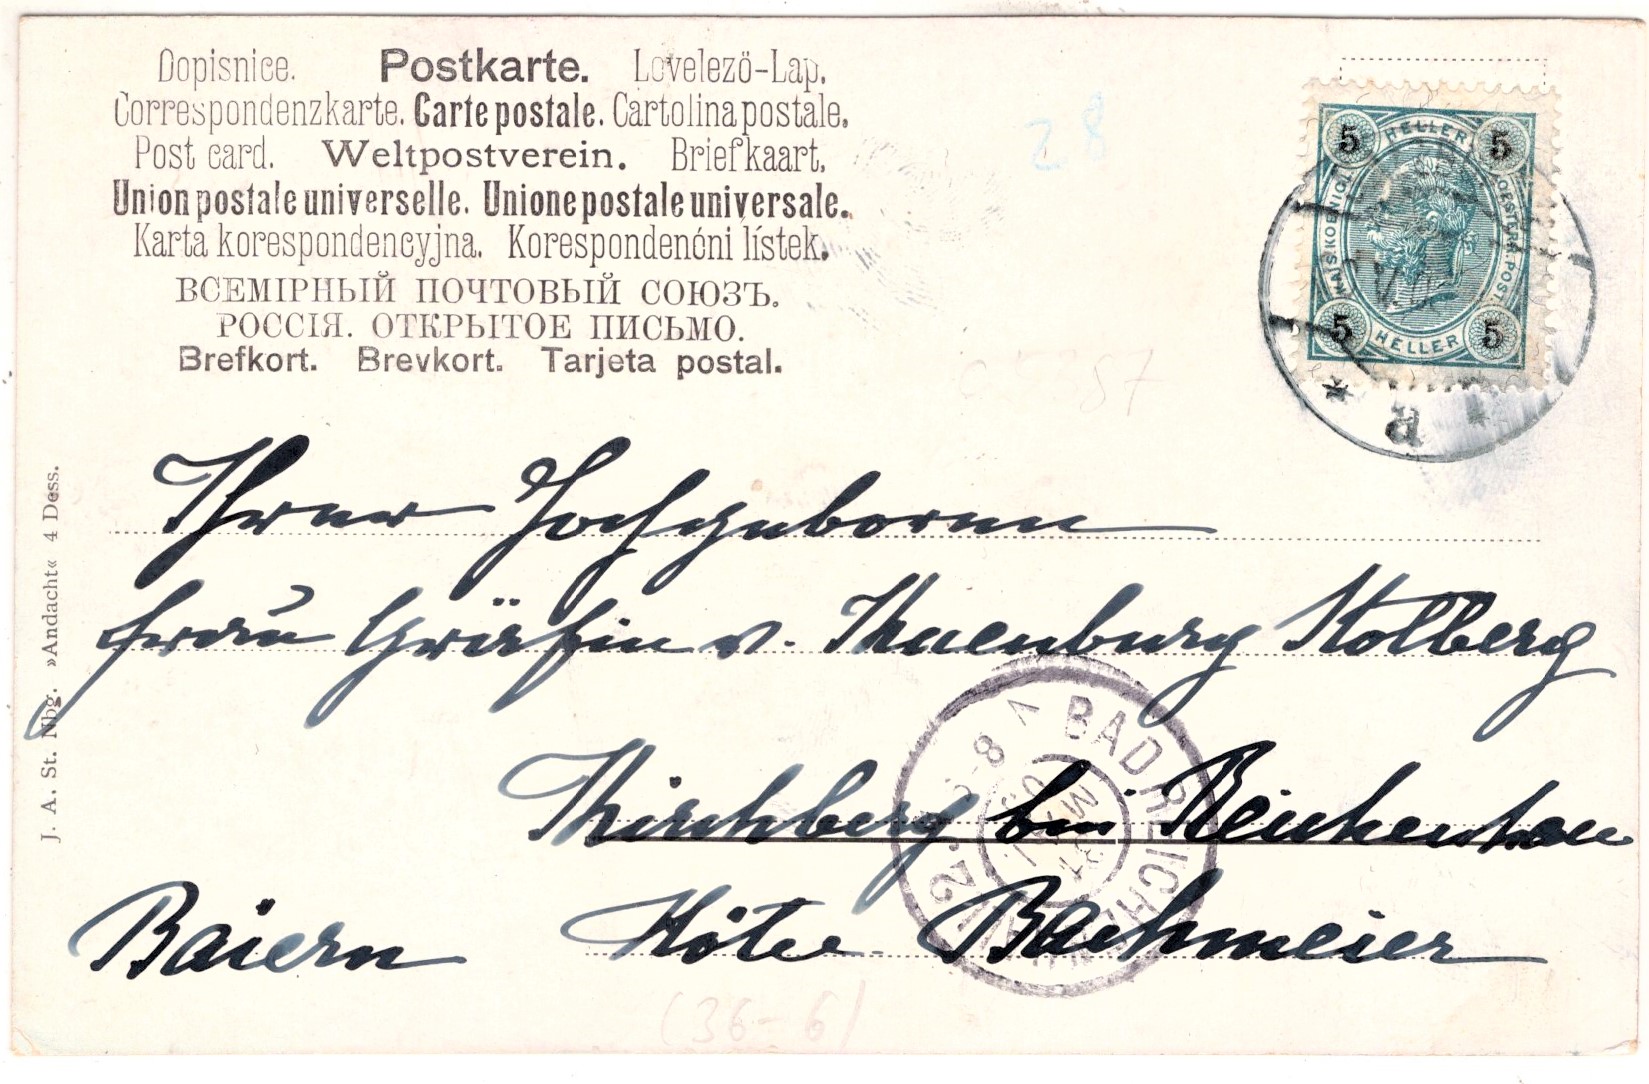 Dopisnice. Postkarte. Levelező-Lap.
Correspondenzkarte. Carte postale. Cartolina postale.
Post card. Weltpostverein. Briefkaart.
Union postale universelle. Unione postale universale.
Karta korespondencyjna. Korespondenćni lístek.
ВСЕМІРНЫЙ ПОЧТОВЫЙ СОЮЗЪ.
РОССІЯ. ОТКРЫТОЕ ПИСЬМО.
Brefkort. Brevkort. Tarjeta postal.
28
5 HELLER 5
KAIS. KOENIGL. OESTERR. POST.
5 HELLER 5
* a *
87
Ihrer Hochgeboren
Frau Gräfin v. Khuenburg Kolberg
Kirchberg bei Reichenhall
Baiern Hôtel Bachmeier
BAD REICHENHALL
31 MAI 03
(36-6)
J. A. St. Nbg. »Andacht« 4 Dess.